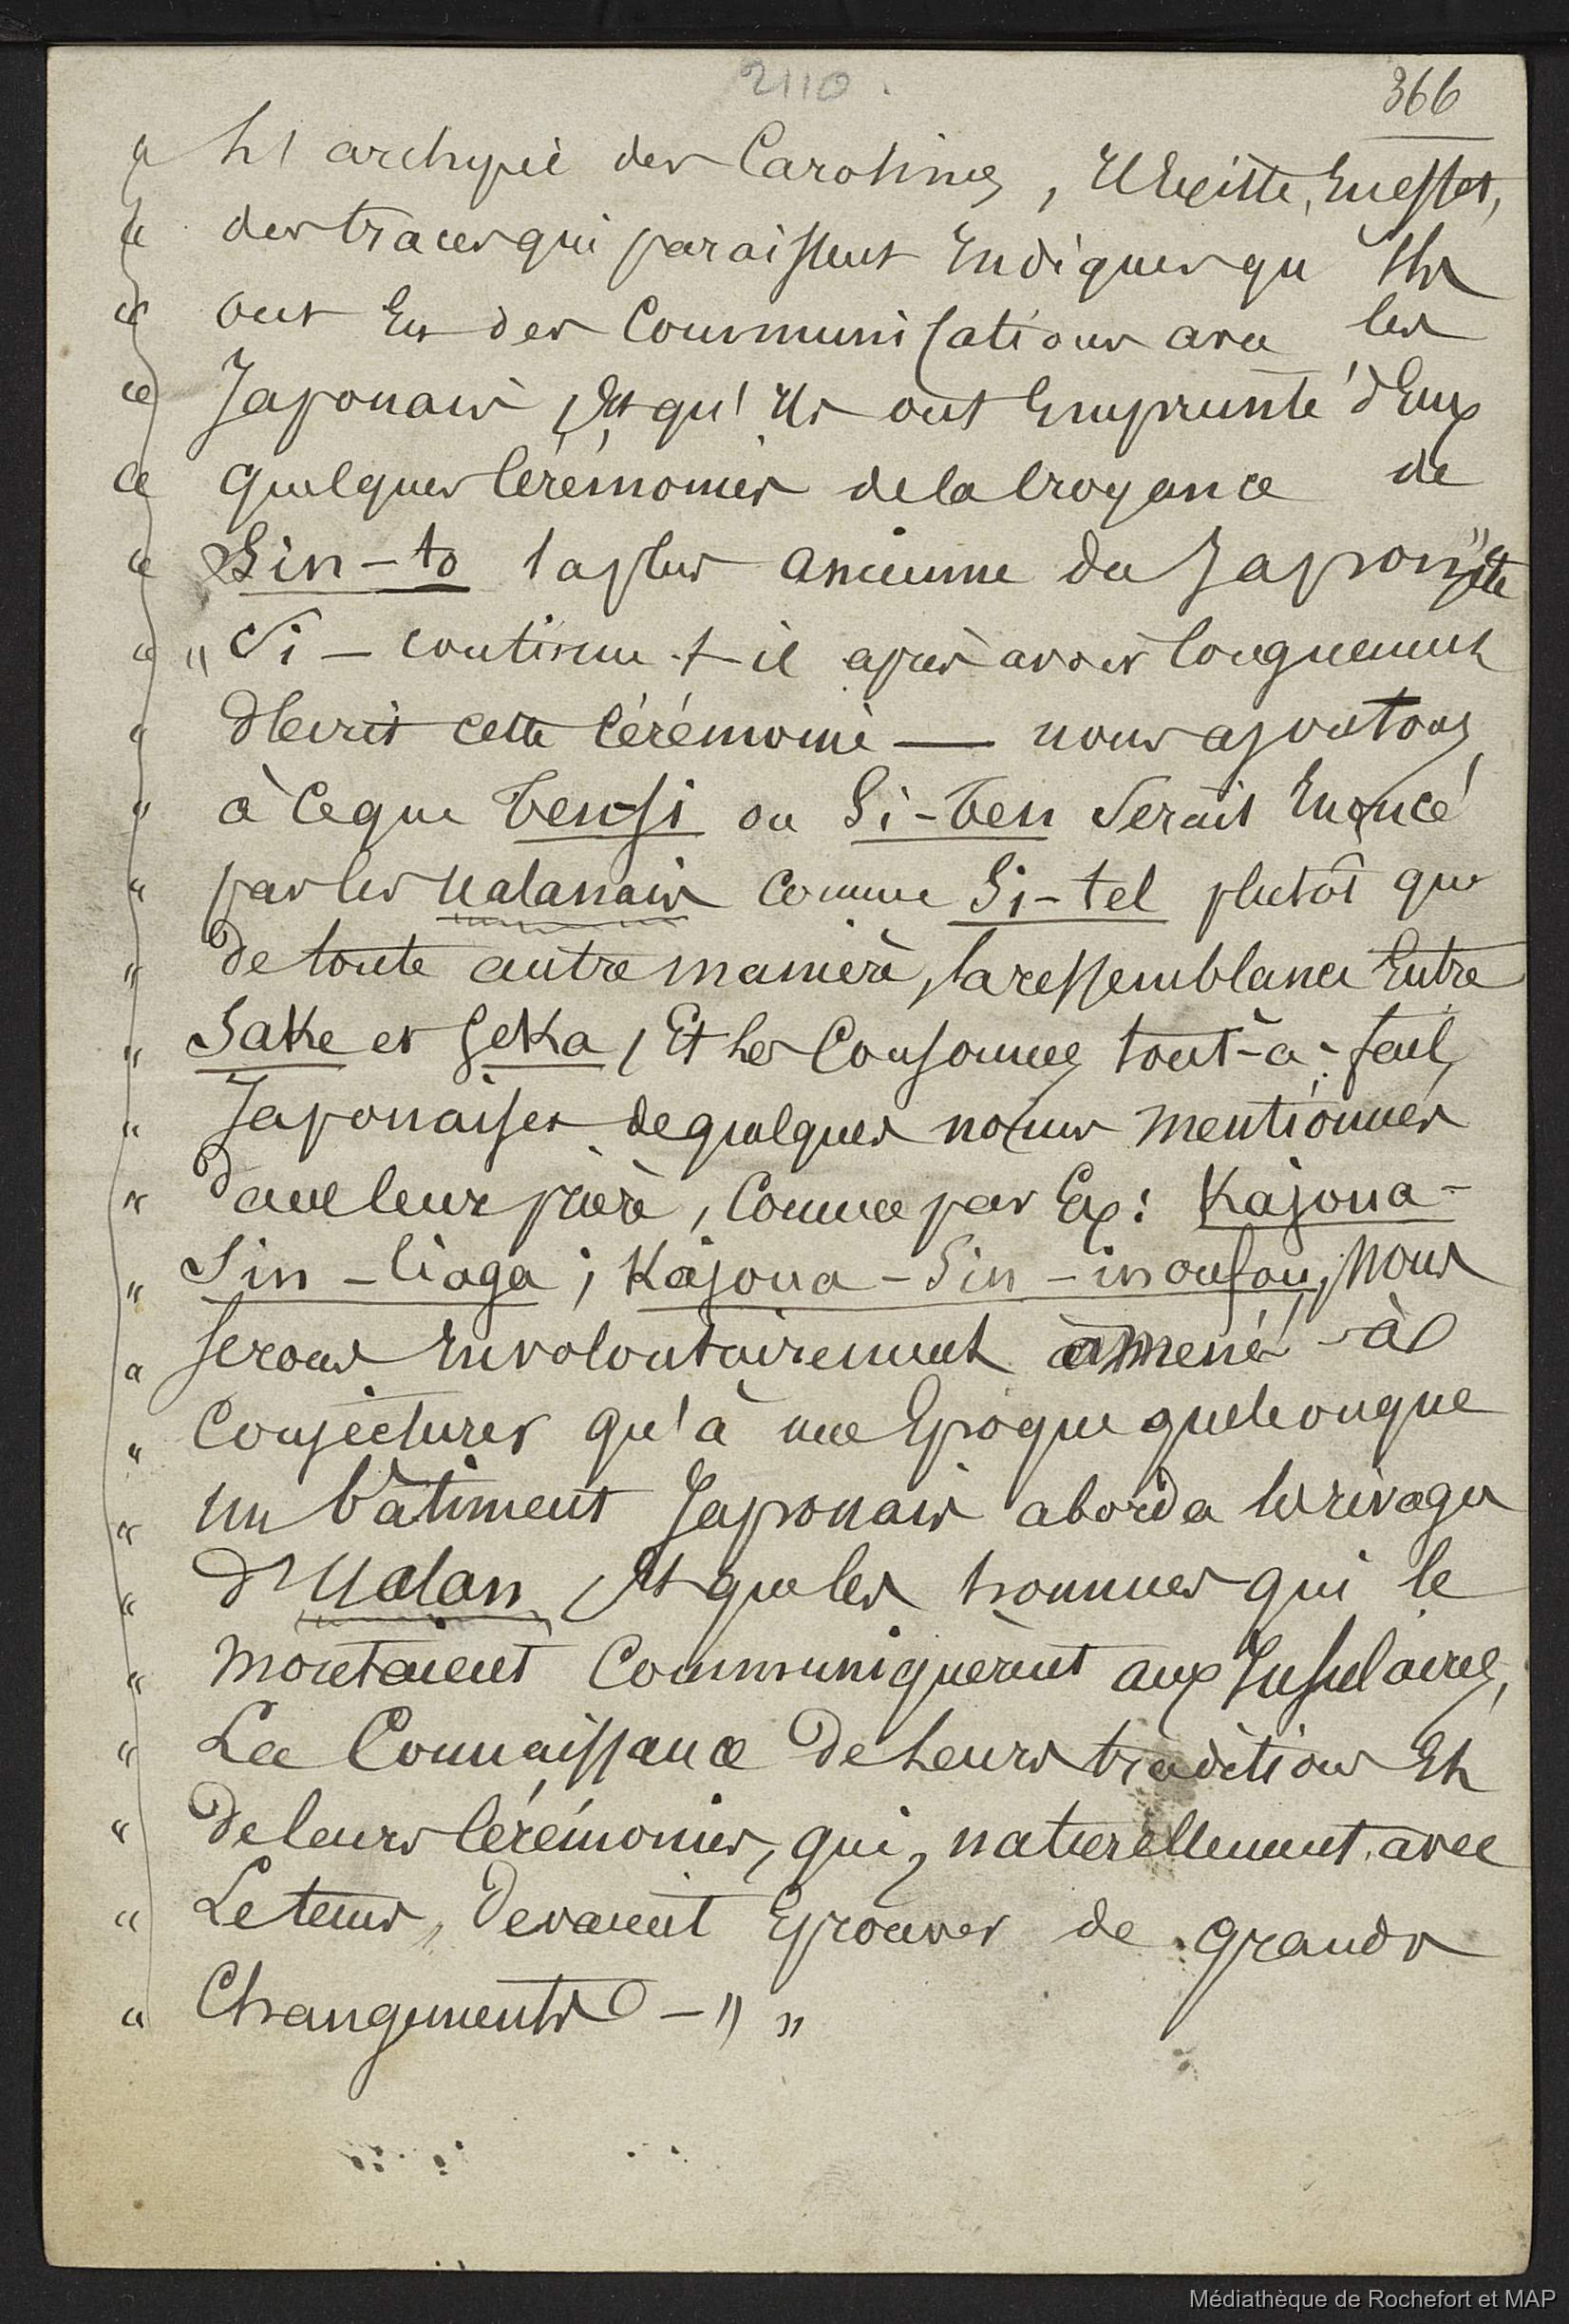 2110.
366
« L'archipel des Carolines, Il Existe, En effet,
« des traces qui paraissent Indiquer qu'Ils
« ont Eu des Communications avec les
« Japonais, Et qu'Ils ont Emprunté d'Eux
« quelques Cérémonies de la Croyance de
« Sin-to la plus ancienne du Japon"
« " Si – continue-t-il après avoir longuement
« décrit cette Cérémonie — nous ajoutons
« à Ce que Ten-si ou Si-ten Serait Enoncé
« par les Ualanais Comme Si-tel plutôt que
« de toute autre manière, la ressemblance Entre
« Sake et Seka, Et les Consonnes tout-à-fait
« Japonaises de quelques noms mentionnés
« dans leur prière, Comme par Ex: Kajoua-
« Sin-liaga; Kajoua-Sin-inoufou, Nous
« serons Involontairement amené à
« Conjecturer qu'à une Epoque quelconque
« un bâtiment Japonais aborda les rivages
« d'Ualan, Et que les hommes qui le
« montaient Communiquèrent aux Insulaires,
« La Connaissance de Leurs traditions Et
« de leurs Cérémonies, qui, naturellement avec
« Le tems, devaient Eprouver de grands
« Changements – " "
Médiathèque de Rochefort et MAP